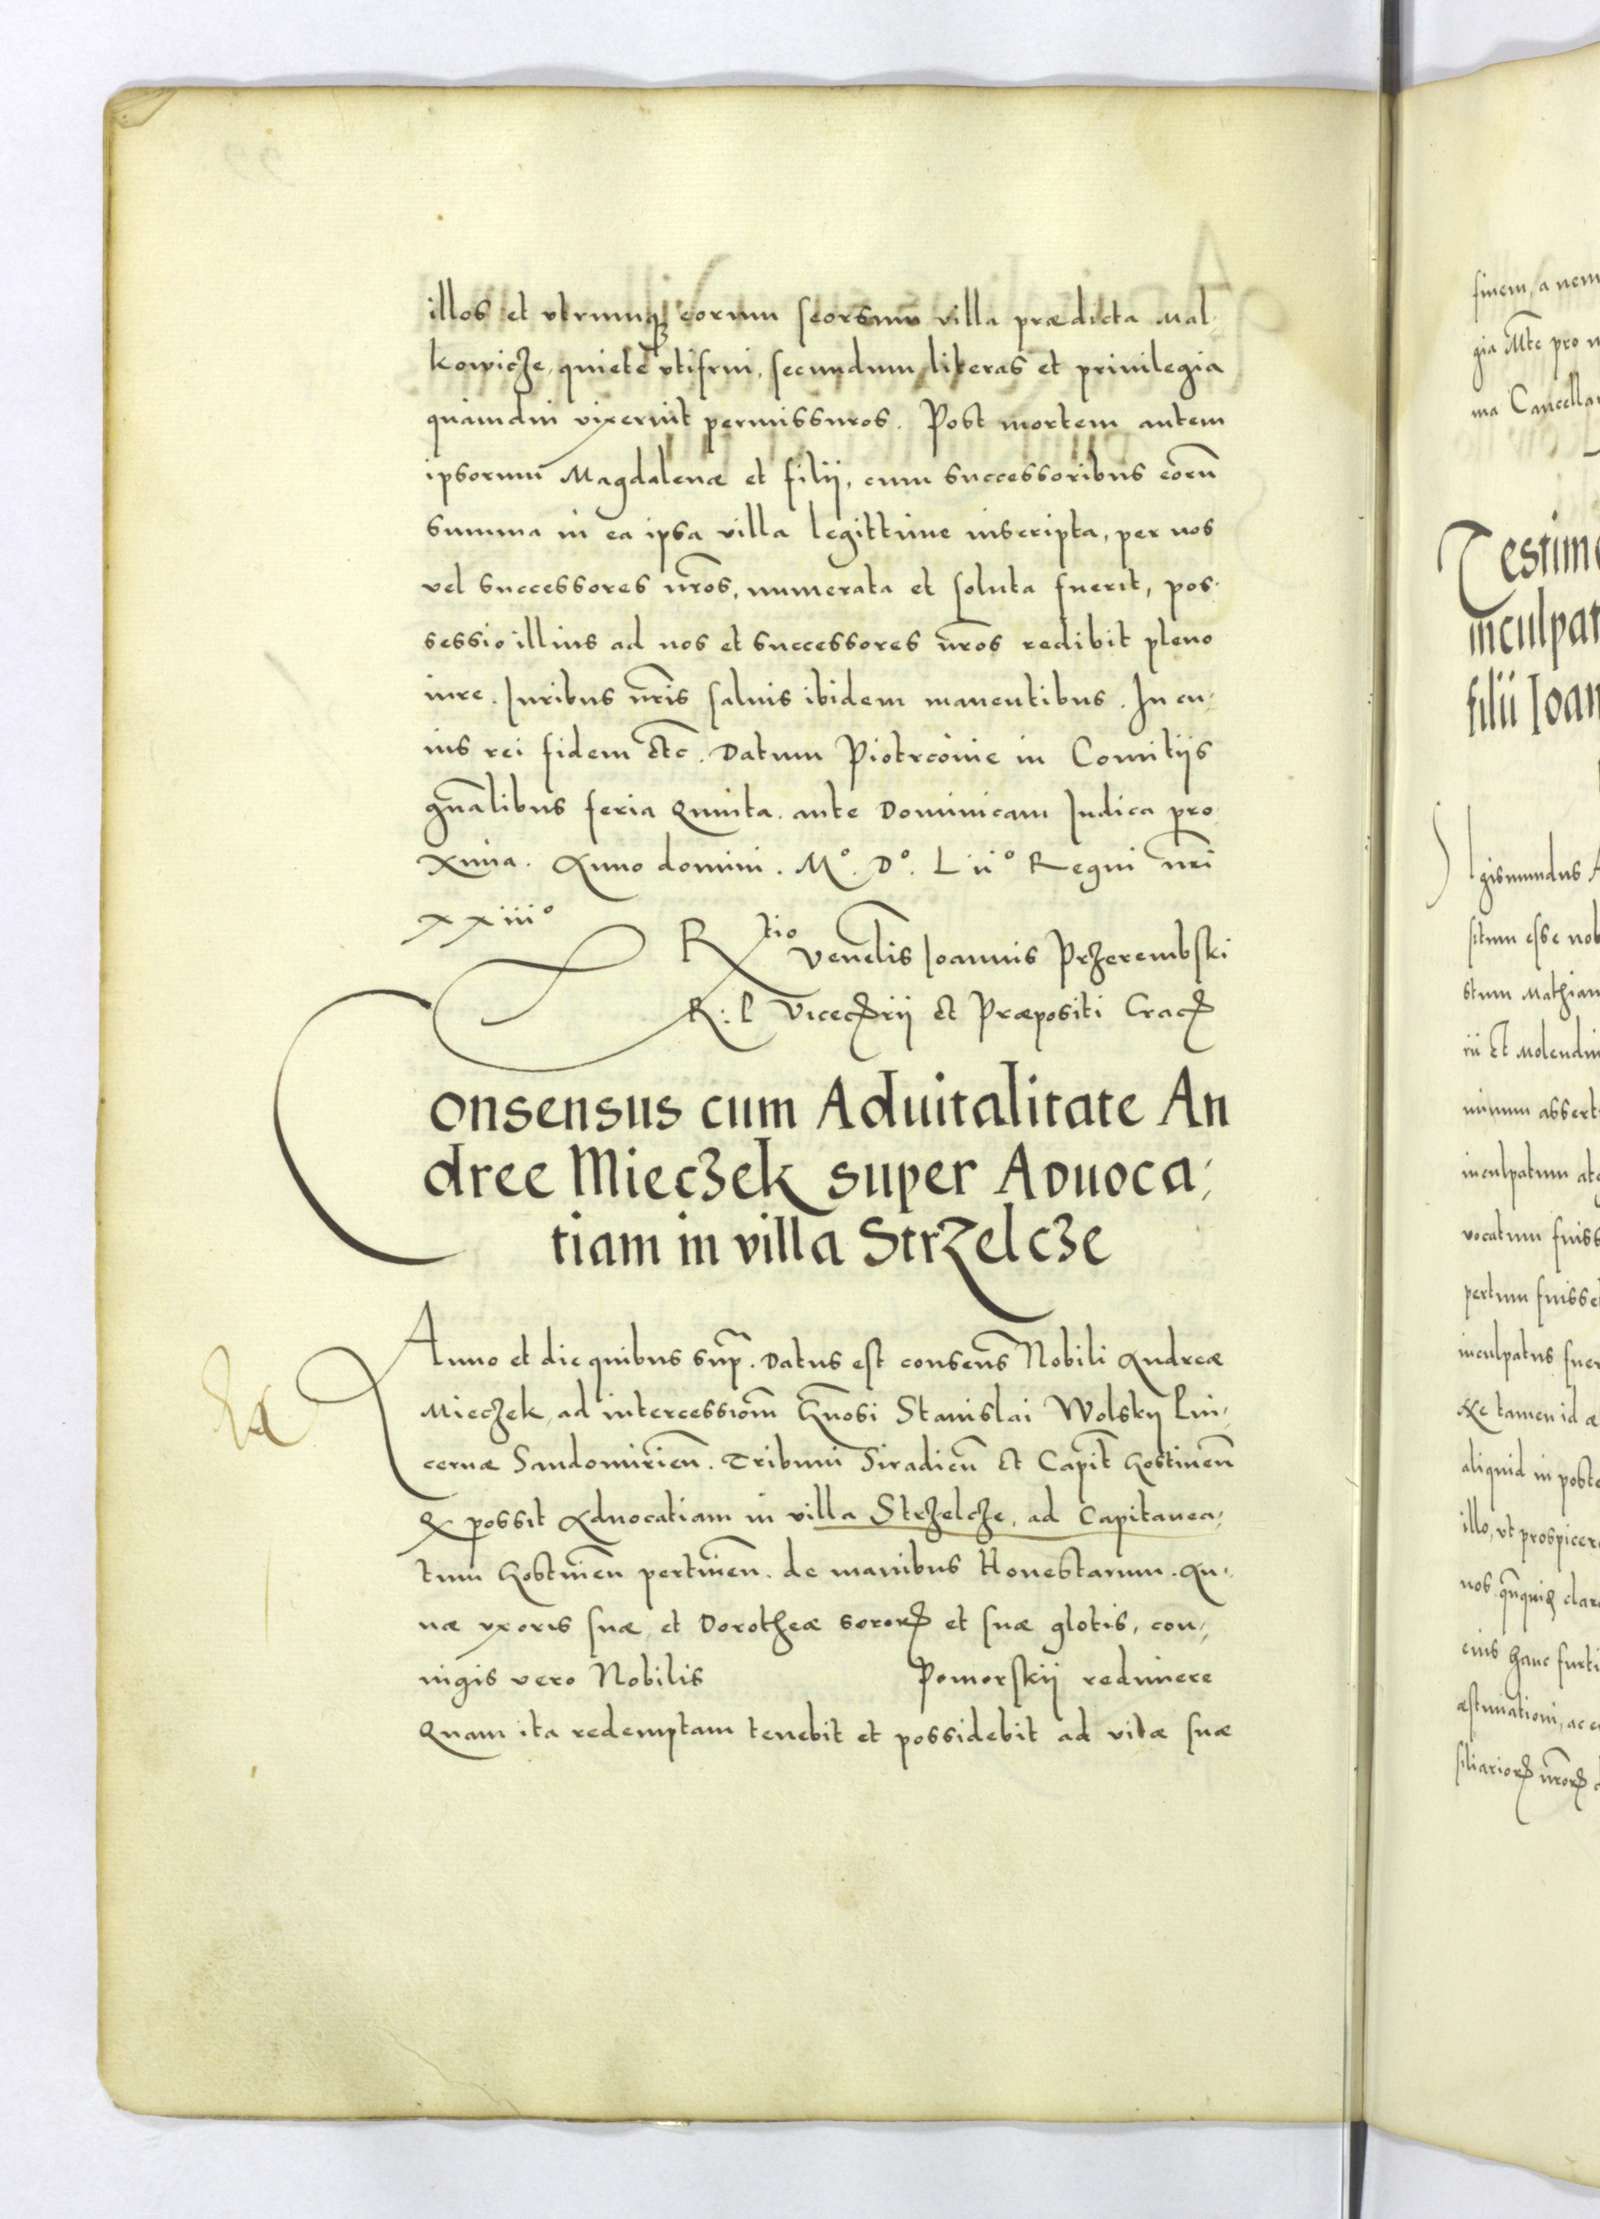 illos et vtrumq eorum seorsum villa prædicta Mal,
kowicze, quiete vtifrui, secundum literas et priuilegia
quamdiu vixerint permissuros. Post mortem autem
ipsorum Magdalenæ et filij, cum successoribus eorũ
summa in ea ipsa villa legittime inscripta, per nos
vel successores nr̃os, numerata et soluta fuerit, pos,
sessio illius ad nos et successores nr̃os redibit pleno
iure. Iuribus nr̃is saluis ibidem manentibus. In cu,
ius rei fidem etc̃. Datum Piotrcouie in Comitijs
gñalibus feria Quinta. ante Dominicam Iudica pro
xima. Anno domini. Mº. Dº. Liiº Regni nr̃i
xxiiiº
Rtio Venelis Ioannis Przerembski
R: P Vicecrij et Præpositi Crac
Consensus cum Aduitalitate An
dree Mieczek super Aduoca,
tiam in villa Strzelcze
Anno et die quibus sup̃. Datus est consens̃ Nobili Andreæ
Mieczek, ad intercessiom̃ Gn̄osi Stanislai Wolskij Pin,
cernæ Sandomirien̄. Tribuni Siradien̄ et Capit̄ Gostinen̄
possit Aduocatiam in villa Strzelcze, ad Capitanea,
tum Gostinen̄ pertinen̄. de manibus Honestarum. An,
næ vxoris suæ, et Dorotheæ soror et suæ glotis, con,
iugis vero Nobilis Pomorskij redimere
Quam ita redemptam tenebit et possidebit ad vitæ suæ
finem, a nem
gia Mtc pro
ma Cancella
Testim
inculpat
filii Ioan
Igismundus
situm esse nob
stum Mathiam
rii et Molendin
minum assert
inculpatum
vocatum fuiss
pertum fuisset
inculpatus fuer
Ne tamen id
aliquid in post
illo, vt prospicer
nos
eius hanc furti
æstimationi, ac
siliarior nr̃or